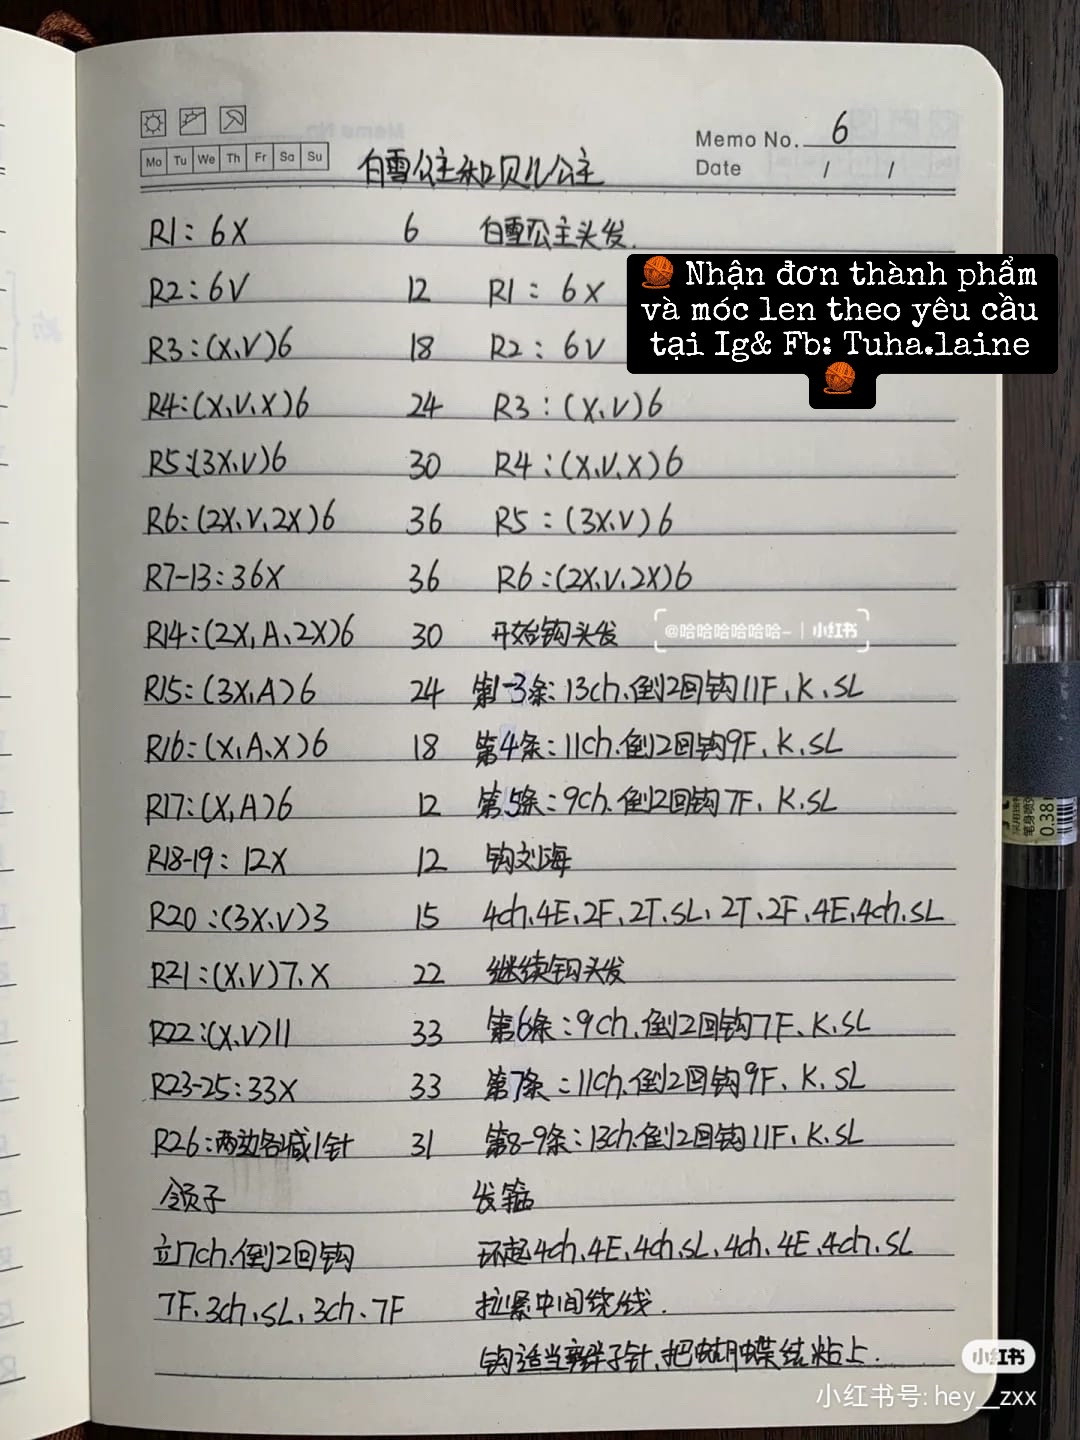 Memo No. 6
Mo Tu We Th Fr Sa Su
Date / /
白雪公主和贝儿公主
R1: 6X 6
R2: 6V 12
R3: (X、V)6 18
R4: (X、V、X)6 24
R5: (3X、V)6 30
R6: (2X、V、2X)6 36
R7-13: 36X 36
R14: (2X、A、2X)6 30
R15: (3X、A)6 24
R16: (X、A、X)6 18
R17: (X、A)6 12
R18-19: 12X 12
R20: (3X、V)3 15
R21: (X、V)7、X 22
R22: (X、V)11 33
R23-25: 33X 33
R26: 两边各减1针 31
领子
立17ch、倒2回钩
7F、3ch、SL、3ch、7F
白雪公主头发.
R1: 6X
R2: 6V
R3: (X、V)6
R4: (X、V、X)6
R5: (3X、V)6
R6: (2X、V、2X)6
开始钩头发
第1-3条: 13ch、倒2回钩11F、K、SL
第4条: 11ch、倒2回钩9F、K、SL
第5条: 9ch、倒2回钩7F、K、SL
钩刘海
4ch、4E、2F、2T、SL、2T、2F、4E、4ch、SL
继续钩头发
第6条: 9ch、倒2回钩7F、K、SL
第7条: 11ch、倒2回钩9F、K、SL
第8-9条: 13ch、倒2回钩11F、K、SL
发箍
环起4ch、4E、4ch、SL、4ch、4E、4ch、SL
拉紧中间绕线.
钩适当辫子针、把蝴蝶结粘上.
Nhận đơn thành phẩm
và móc len theo yêu cầu
tại Ig& Fb: Tuha.laine
@哈哈哈哈哈哈- | 小红书
0.38
小红书
小红书号: hey__zxx